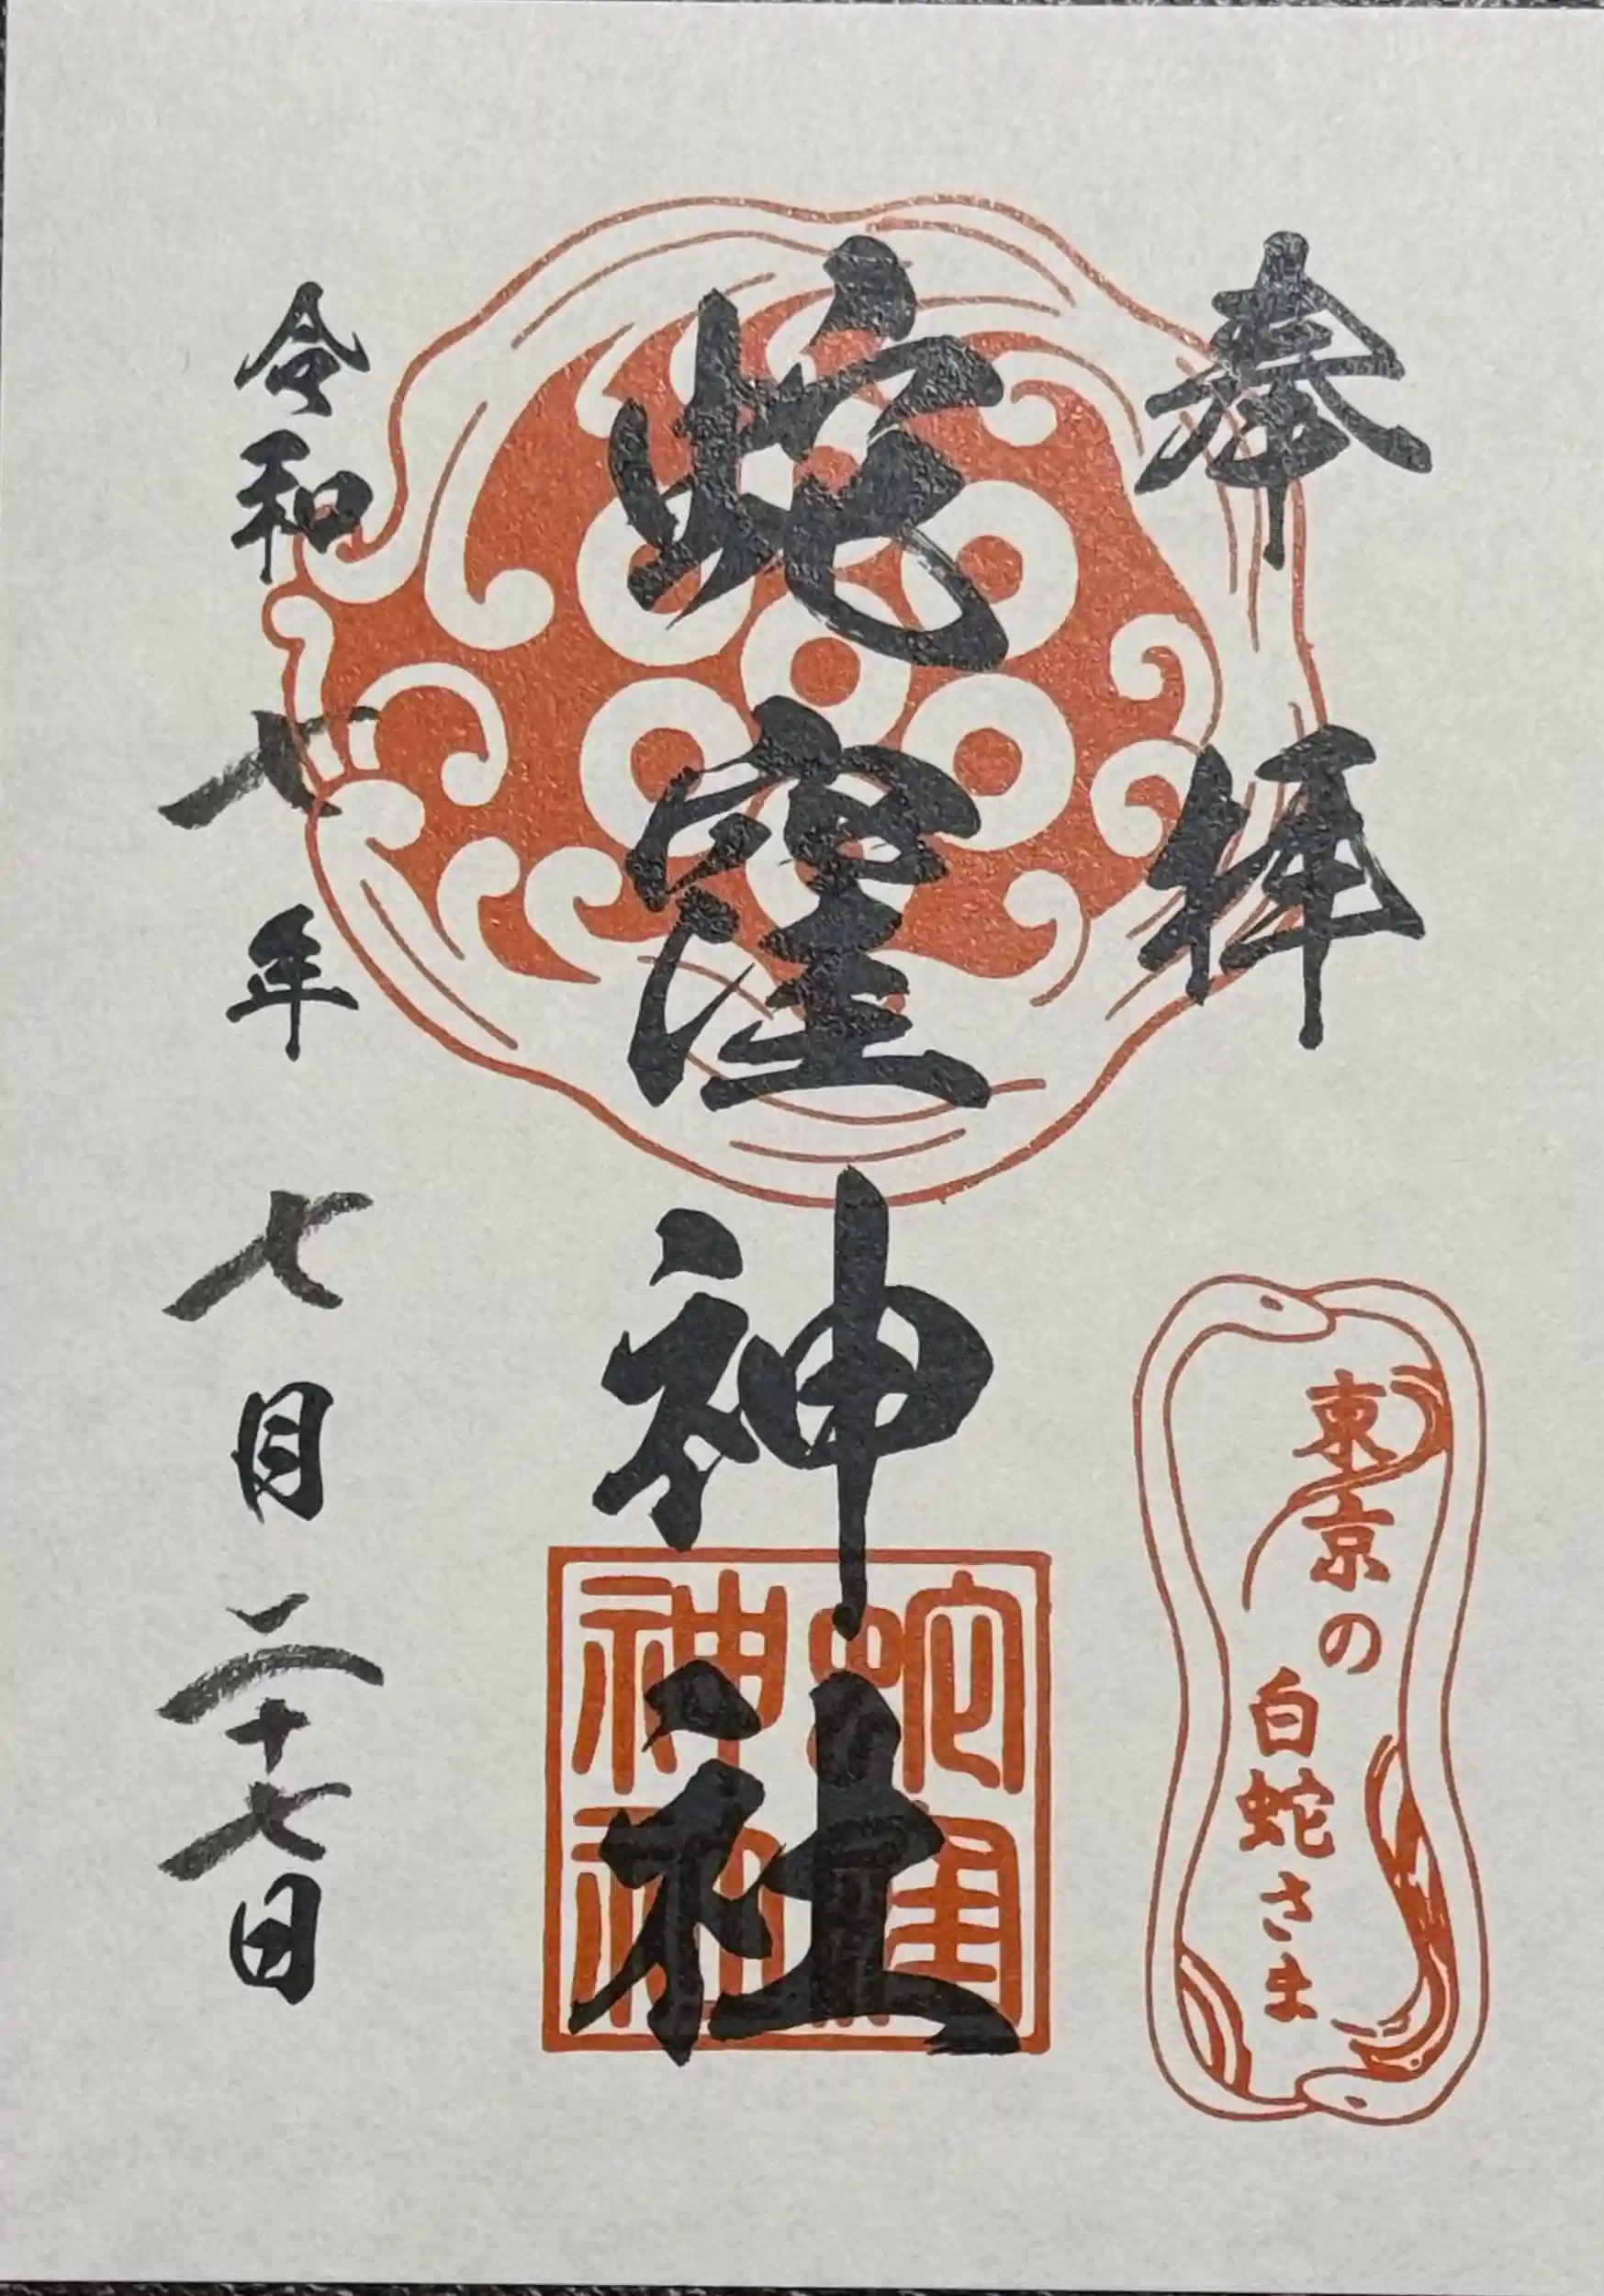 奉拝
蛇窪神社
蛇窪神社
東京の
白蛇さま
令和七年七月二十七日